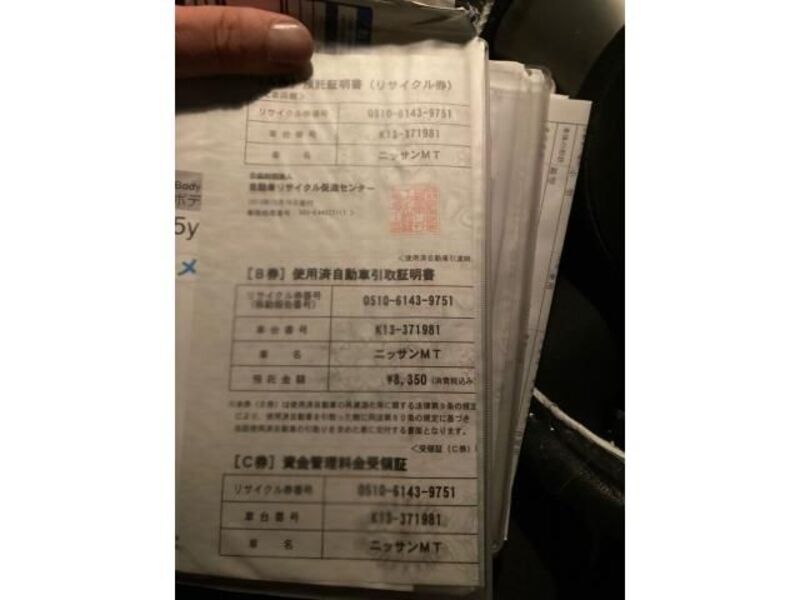 預託証明書（リサイクル券）
リサイクル券番号 0510-6143-9751
車台番号 K13-371981
車名 ニッサンMT
自動車リサイクル促進センター
Body
ボデ
5y
メ
＜使用済自動車引渡時
【B券】使用済自動車引取証明書
リサイクル券番号 0510-6143-9751
（移動報告番号）
車台番号 K13-371981
車名 ニッサンMT
預託金額 ¥8,350（消費税込み
※本券（B券）は使用済自動車の再資源化等に関する法律第9条の規定
により、使用済自動車を引取った際に同法第80条の規定に基づき
当該使用済自動車の引取りを求めた者に交付する書面となります。
＜受領証（C券）
【C券】資金管理料金受領証
リサイクル券番号 0510-6143-9751
車台番号 K13-371981
車名 ニッサンMT